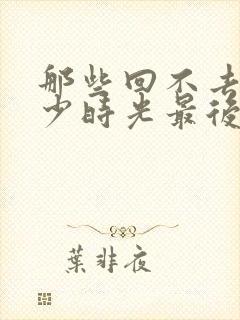 那些回不去
少時光最後
葉非夜